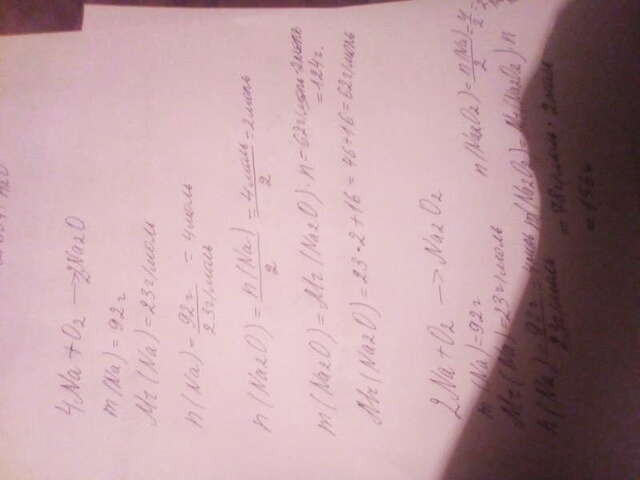 4Na + O2 → 2Na2O
m(Na) = 92г
Mr(Na) = 23г/моль
n(Na) = 92г / 23г/моль = 4моль
n(Na2O) = n(Na) / 2 = 4моль / 2 = 2моль
m(Na2O) = Mr(Na2O) · n = 62г/моль · 2моль
= 124г.
Mr(Na2O) = 23 · 2 + 16 = 46 + 16 = 62г/моль
2Na + O2 → Na2O2
m(Na) = 92г
n(Na2O2) = n(Na) / 2 = 4 / 2 =
Mr(Na) = 23г/моль
m(Na2O2) = Mr(Na2O2) · n
n(Na) = 92г / 23г/моль = 4моль
= 78г/моль · 2моль